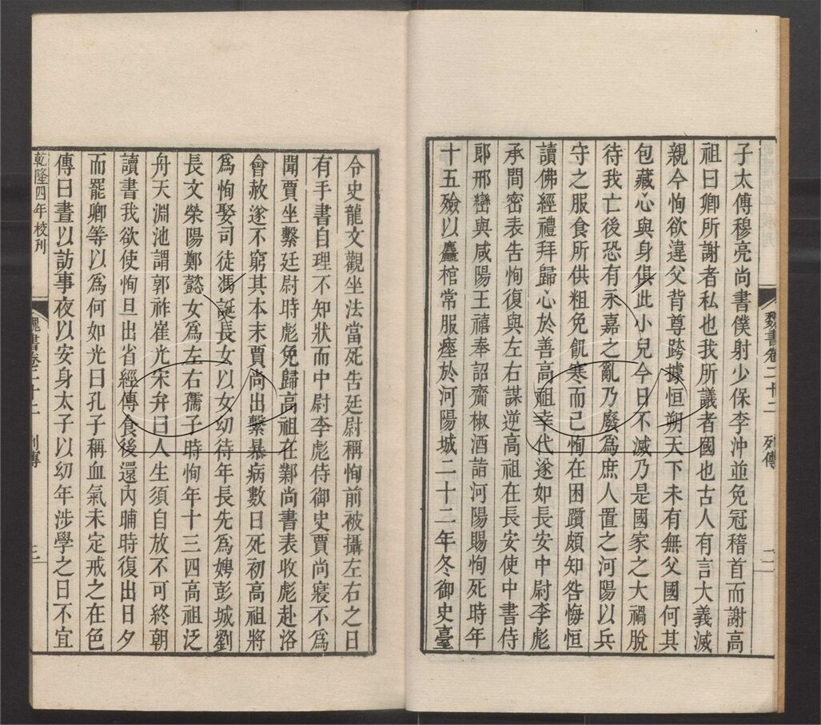 魏書卷二十二 列傳 二
子太傅穆亮尚書僕射少保李沖並免冠稽首而謝高
祖曰卿所謝者私也我所議者國也古人有言大義滅
親今恂欲違父背尊跨據恒朔天下未有無父國何其
包藏心與身俱此小兒今日不滅乃是國家之大禍脫
待我亡後恐有永嘉之亂乃廢為庶人置之河陽以兵
守之服食所供粗免飢寒而已恂在困躓頗知咎悔恒
讀佛經禮拜歸心於善高祖幸代遂如長安中尉李彪
承間密表告恂復與左右謀逆高祖在長安使中書侍
郎邢巒與咸陽王禧奉詔齎椒酒詣河陽賜恂死時年
十五殮以麤棺常服瘞於河陽城二十二年冬御史臺
令史龍文觀坐法當死告廷尉稱恂前被攝左右之日
有手書自理不知狀而中尉李彪侍御史賈尚寢不為
聞賈坐繫廷尉時彪免歸高祖在鄴尚書表收彪赴洛
會赦遂不窮其本末賈尚出繫暴病數日死初高祖將
為恂娶司徒馮誕長女以女幼待年長先為娉彭城劉
長文滎陽鄭懿女為左右孺子時恂年十三四高祖泛
舟天淵池謂郭祚崔光宋弁曰人生須自放不可終朝
讀書我欲使恂旦出省經傳食後還內晡時復出日夕
而罷卿等以為何如光曰孔子稱血氣未定戒之在色
傳曰晝以訪事夜以安身太子以幼年涉學之日不宜
乾隆四年校刊
魏書卷二十二 列傳 三